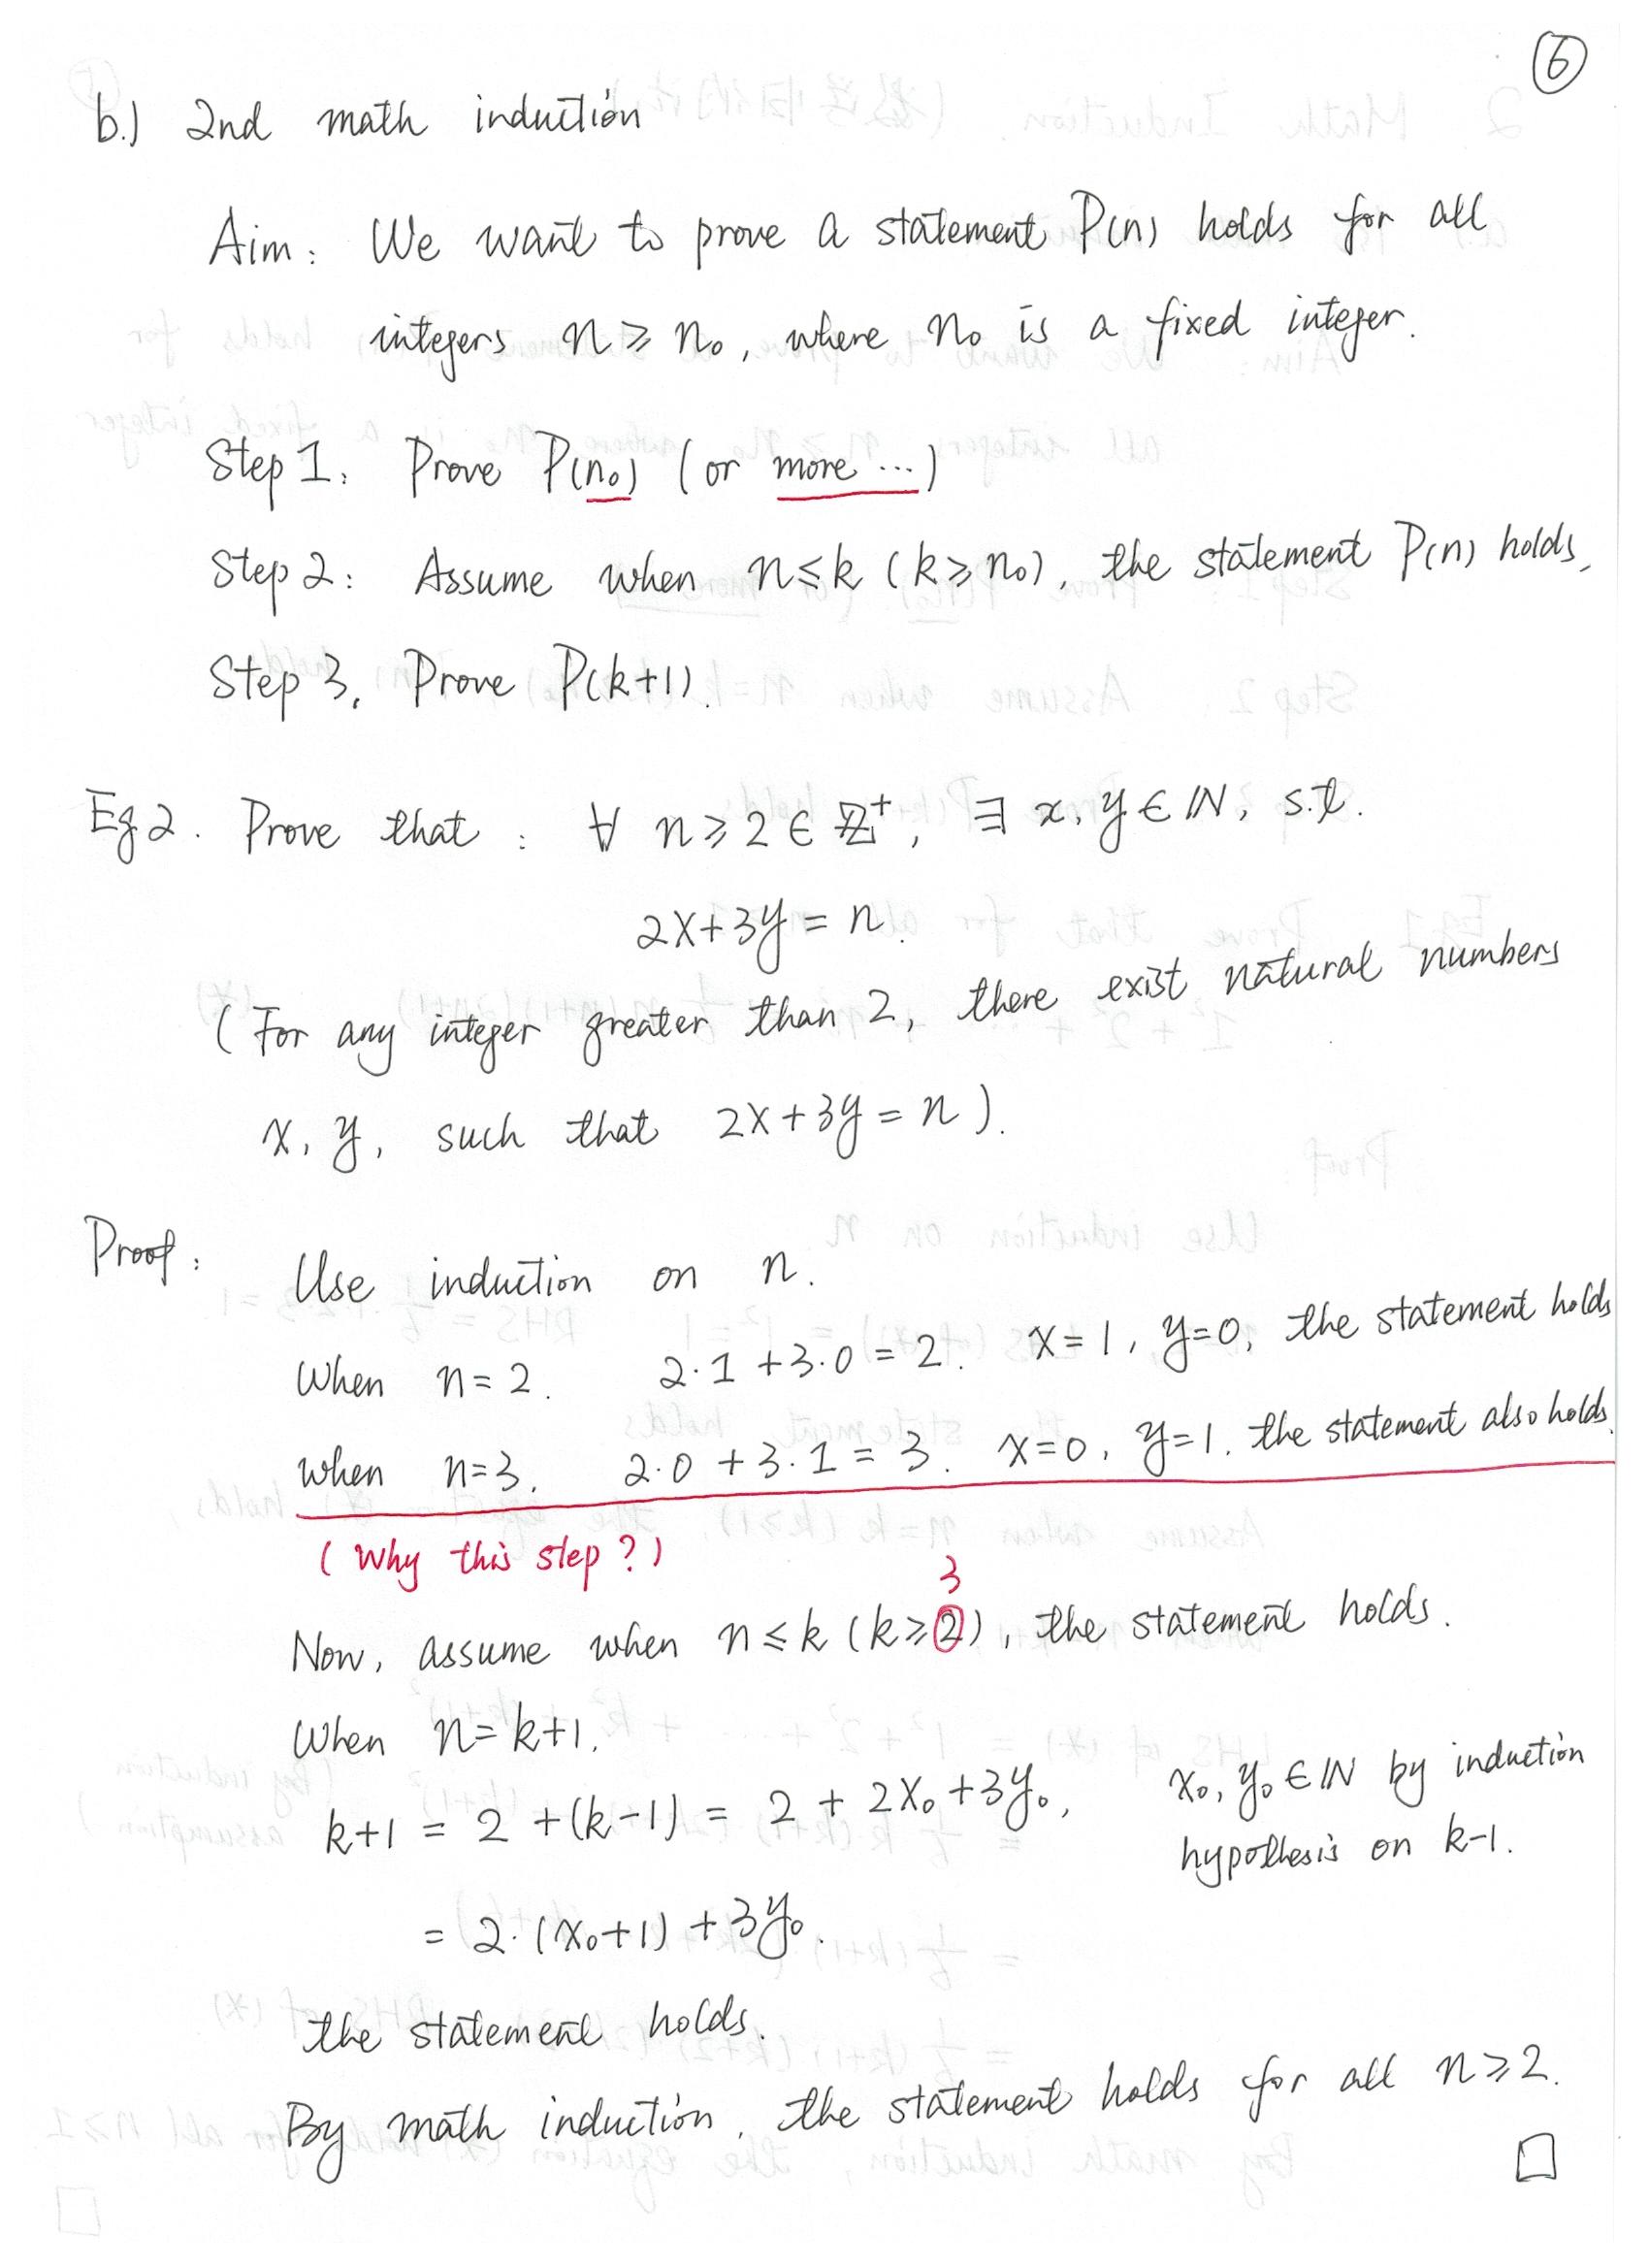 6
b.) 2nd math induction
Aim: We want to prove a statement P(n) holds for all
integers n ≥ n₀, where n₀ is a fixed integer.
Step 1. Prove P(n₀) (or more ...)
Step 2: Assume when n ≤ k (k ≥ n₀), the statement P(n) holds.
Step 3. Prove P(k+1).
Eg 2. Prove that : ∀ n ≥ 2 ∈ ℤ⁺, ∃ x, y ∈ ℕ, s.t.
2x+3y = n.
(For any integer greater than 2, there exist natural numbers
x, y, such that 2x+3y = n).
Proof:
Use induction on n.
When n = 2. 2·1 + 3·0 = 2. x = 1, y=0, the statement holds
when n=3. 2·0 + 3·1 = 3. x=0, y=1. the statement also holds.
(Why this step?)
3
Now, assume when n ≤ k (k ≥ 2), the statement holds.
When n = k+1.
k+1 = 2 + (k-1) = 2 + 2x₀ + 3y₀, x₀, y₀ ∈ ℕ by induction
hypothesis on k-1.
= 2·(x₀+1) + 3y₀.
the statement holds.
By math induction, the statement holds for all n ≥ 2.
□